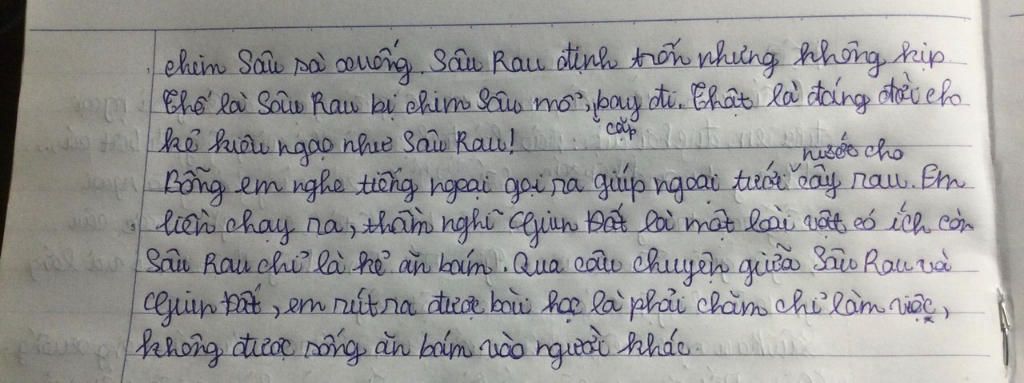 chim Sâu sà xuống. Sâu Rau định trốn nhưng không kịp
Thế là Sâu Rau bị chim Sâu mổ, cắp bay đi. Thật là đáng đời cho
kẻ kiêu ngạo như Sâu Rau!
Bỗng em nghe tiếng ngoại gọi ra giúp ngoại tưới nước cho cây rau. Em
liền chạy ra, thầm nghĩ Giun Đất là một loài vật có ích còn
Sâu Rau chỉ là kẻ ăn bám. Qua câu chuyện giữa Sâu Rau và
Giun Đất, em rút ra được bài học là phải chăm chỉ làm việc,
không được sống ăn bám vào người khác.